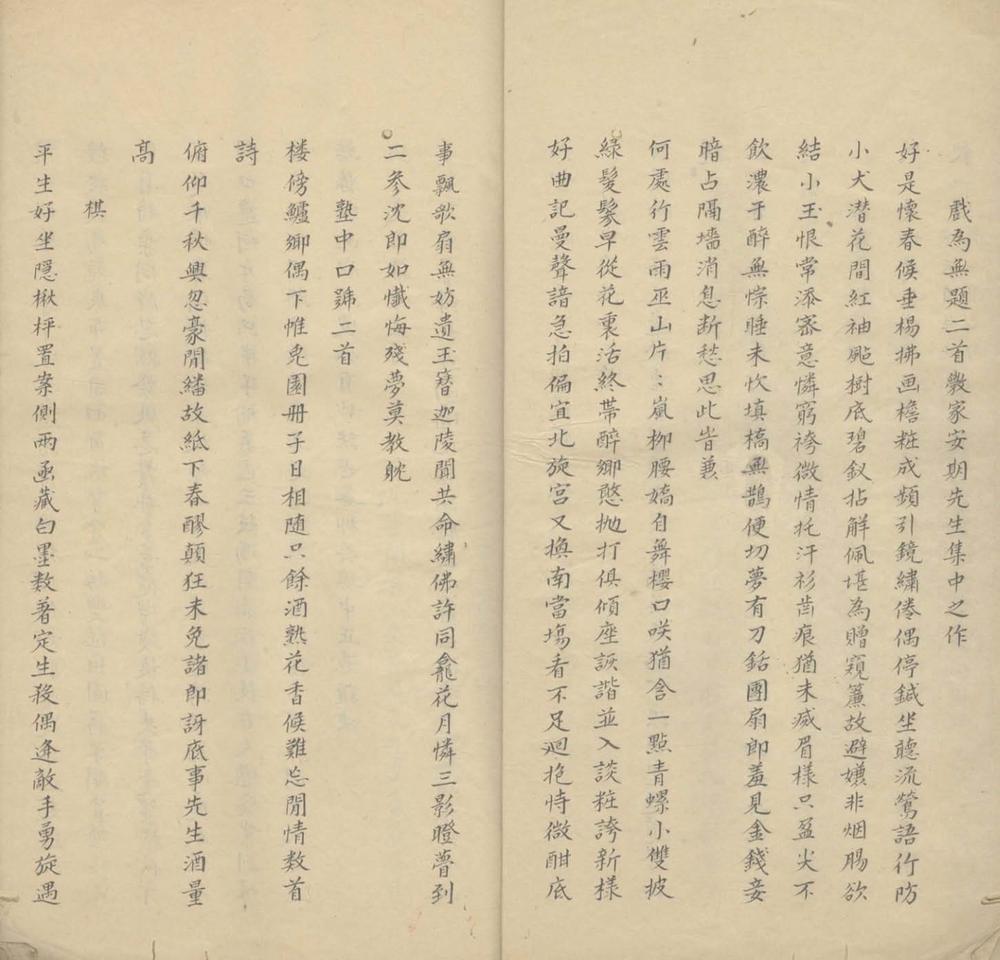 戲為無題二首斅家安期先生集中之作
好是懷春候垂楊拂画檐粧成頻引鏡繡倦偶停鍼坐聼流鶯語行防
小犬潜花間紅袖颭樹底碧釵拈解佩堪為贈窺簾故避嫌非烟腸欲
結小玉恨常添宻意憐窮袴微情托汗衫齒痕猶未滅眉様只盈尖不
飲濃于醉無悰睡未忺填橋無鵲便切夢有刀銛團扇郎羞見金錢妾
暗占隔墙消息断愁思此皆兼
何處行雲雨巫山片〻嵐柳腰嬌自舞櫻口咲猶含一點青螺小雙披
綠髪鬖早從花裏活終帯醉郷憨抛打俱傾座詼諧並入談粧誇新様
好曲記曼聲諳急拍偏宜北旋宮又換南當塲看不足廻抱恃微酣底
事飄歌扇無妨遺玉簪迦陵聞共命繡佛許同龕花月憐三影瞪瞢到
二參沈郎如懺悔殘夢莫教躭
塾中口號二首
楼傍鱸郷偶下帷兎園册子日相随只餘酒熟花香候難忘閒情数首
詩
俯仰千秋興忽豪閒繙故紙下春醪顛狂未免諸郎訝底事先生酒量
高
棋
平生好坐隱楸枰置案側兩函藏白墨数著定生殺偶逢敵手勇旋遇